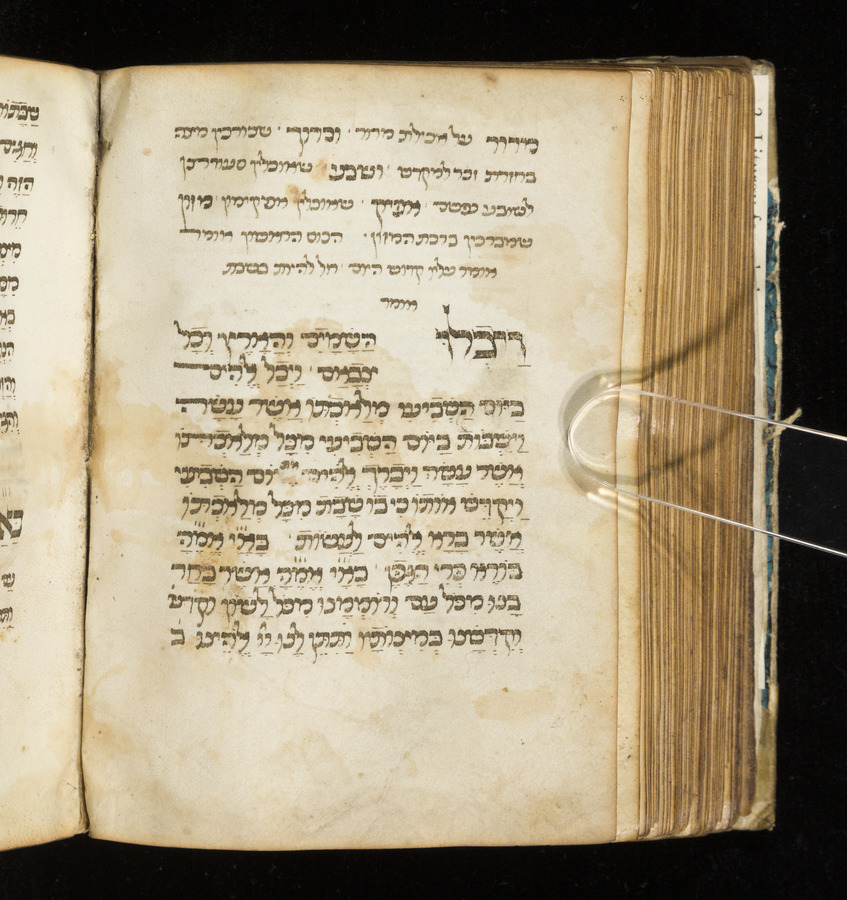 מירור על אכילת מרור · וכרוך · שכורכין מצה
בחזרת זכר למקדש · ושבע · שאוכלין סעודתכן
לשובע נפשם · שאוכלין אפיקימין · מזון
שמברכין ברכת המזון · הכוס הראשון אומר
אומר עליו קדוש היום · חל להיות בשבת
אומר
וַיְכֻלּוּ הַשָּׁמַיִם וְהָאָרֶץ וְכָל
צְבָאָם · וַיְכַל אֱלֹהִים
בַּיּוֹם הַשְּׁבִיעִי מְלַאכְתּוֹ אֲשֶׁר עָשָׂה
וַיִּשְׁבּוֹת בַּיּוֹם הַשְּׁבִיעִי מִכָּל מְלַאכְתּוֹ
אֲשֶׁר עָשָׂה וַיְבָרֶךְ אֱלֹהִים את יוֹם הַשְּׁבִיעִי
וַיְקַדֵּשׁ אוֹתוֹ כִּי בוֹ שָׁבַת מִכָּל מְלַאכְתּוֹ
אֲשֶׁר בָּרָא אֱלֹהִים לַעֲשׂוֹת · בָּאיי אֱמָהָ
בּוֹרֵא פְּרִי הַגֶּפֶן · בָּאיי אֱמָהָ אֲשֶׁר בָּחַר
בָּנוּ מִכָּל עַם וְרוֹמְמָנוּ מִכָּל לָשׁוֹן וְקִדְּשָׁ
וְקִדְּשָׁנוּ בְּמִצְוֹתָיו וַתִּתֵּן לָנוּ יְיָ אֱלֹהֵינוּ בְּ